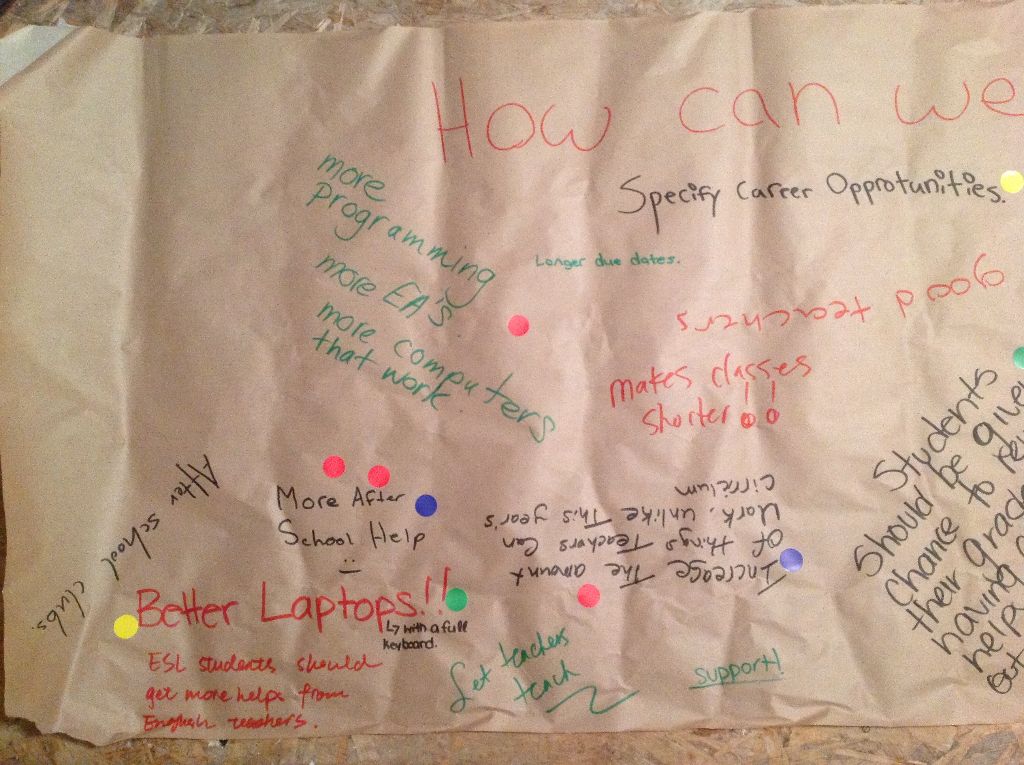 How can we
Specify Career Opprotunities.
more
Programming
more EA's
more computers
that work
Longer due dates.
good teachers
makes classes
shorter!!
After school clubs.
More After
School Help
Increase The amount
Of things Teachers Can
Mark, unlike This year's
Cirriculum
Better Laptops!!
↳ with a full
keyboard.
ESL students should
get more helps from
English teachers.
Let teachers
teach
support!
Students
Should be given
Chance to
their grade
having
help